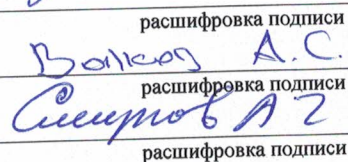 расшифровка подписи
Волков А.С.
расшифровка подписи
Смирнов А Г
расшифровка подписи